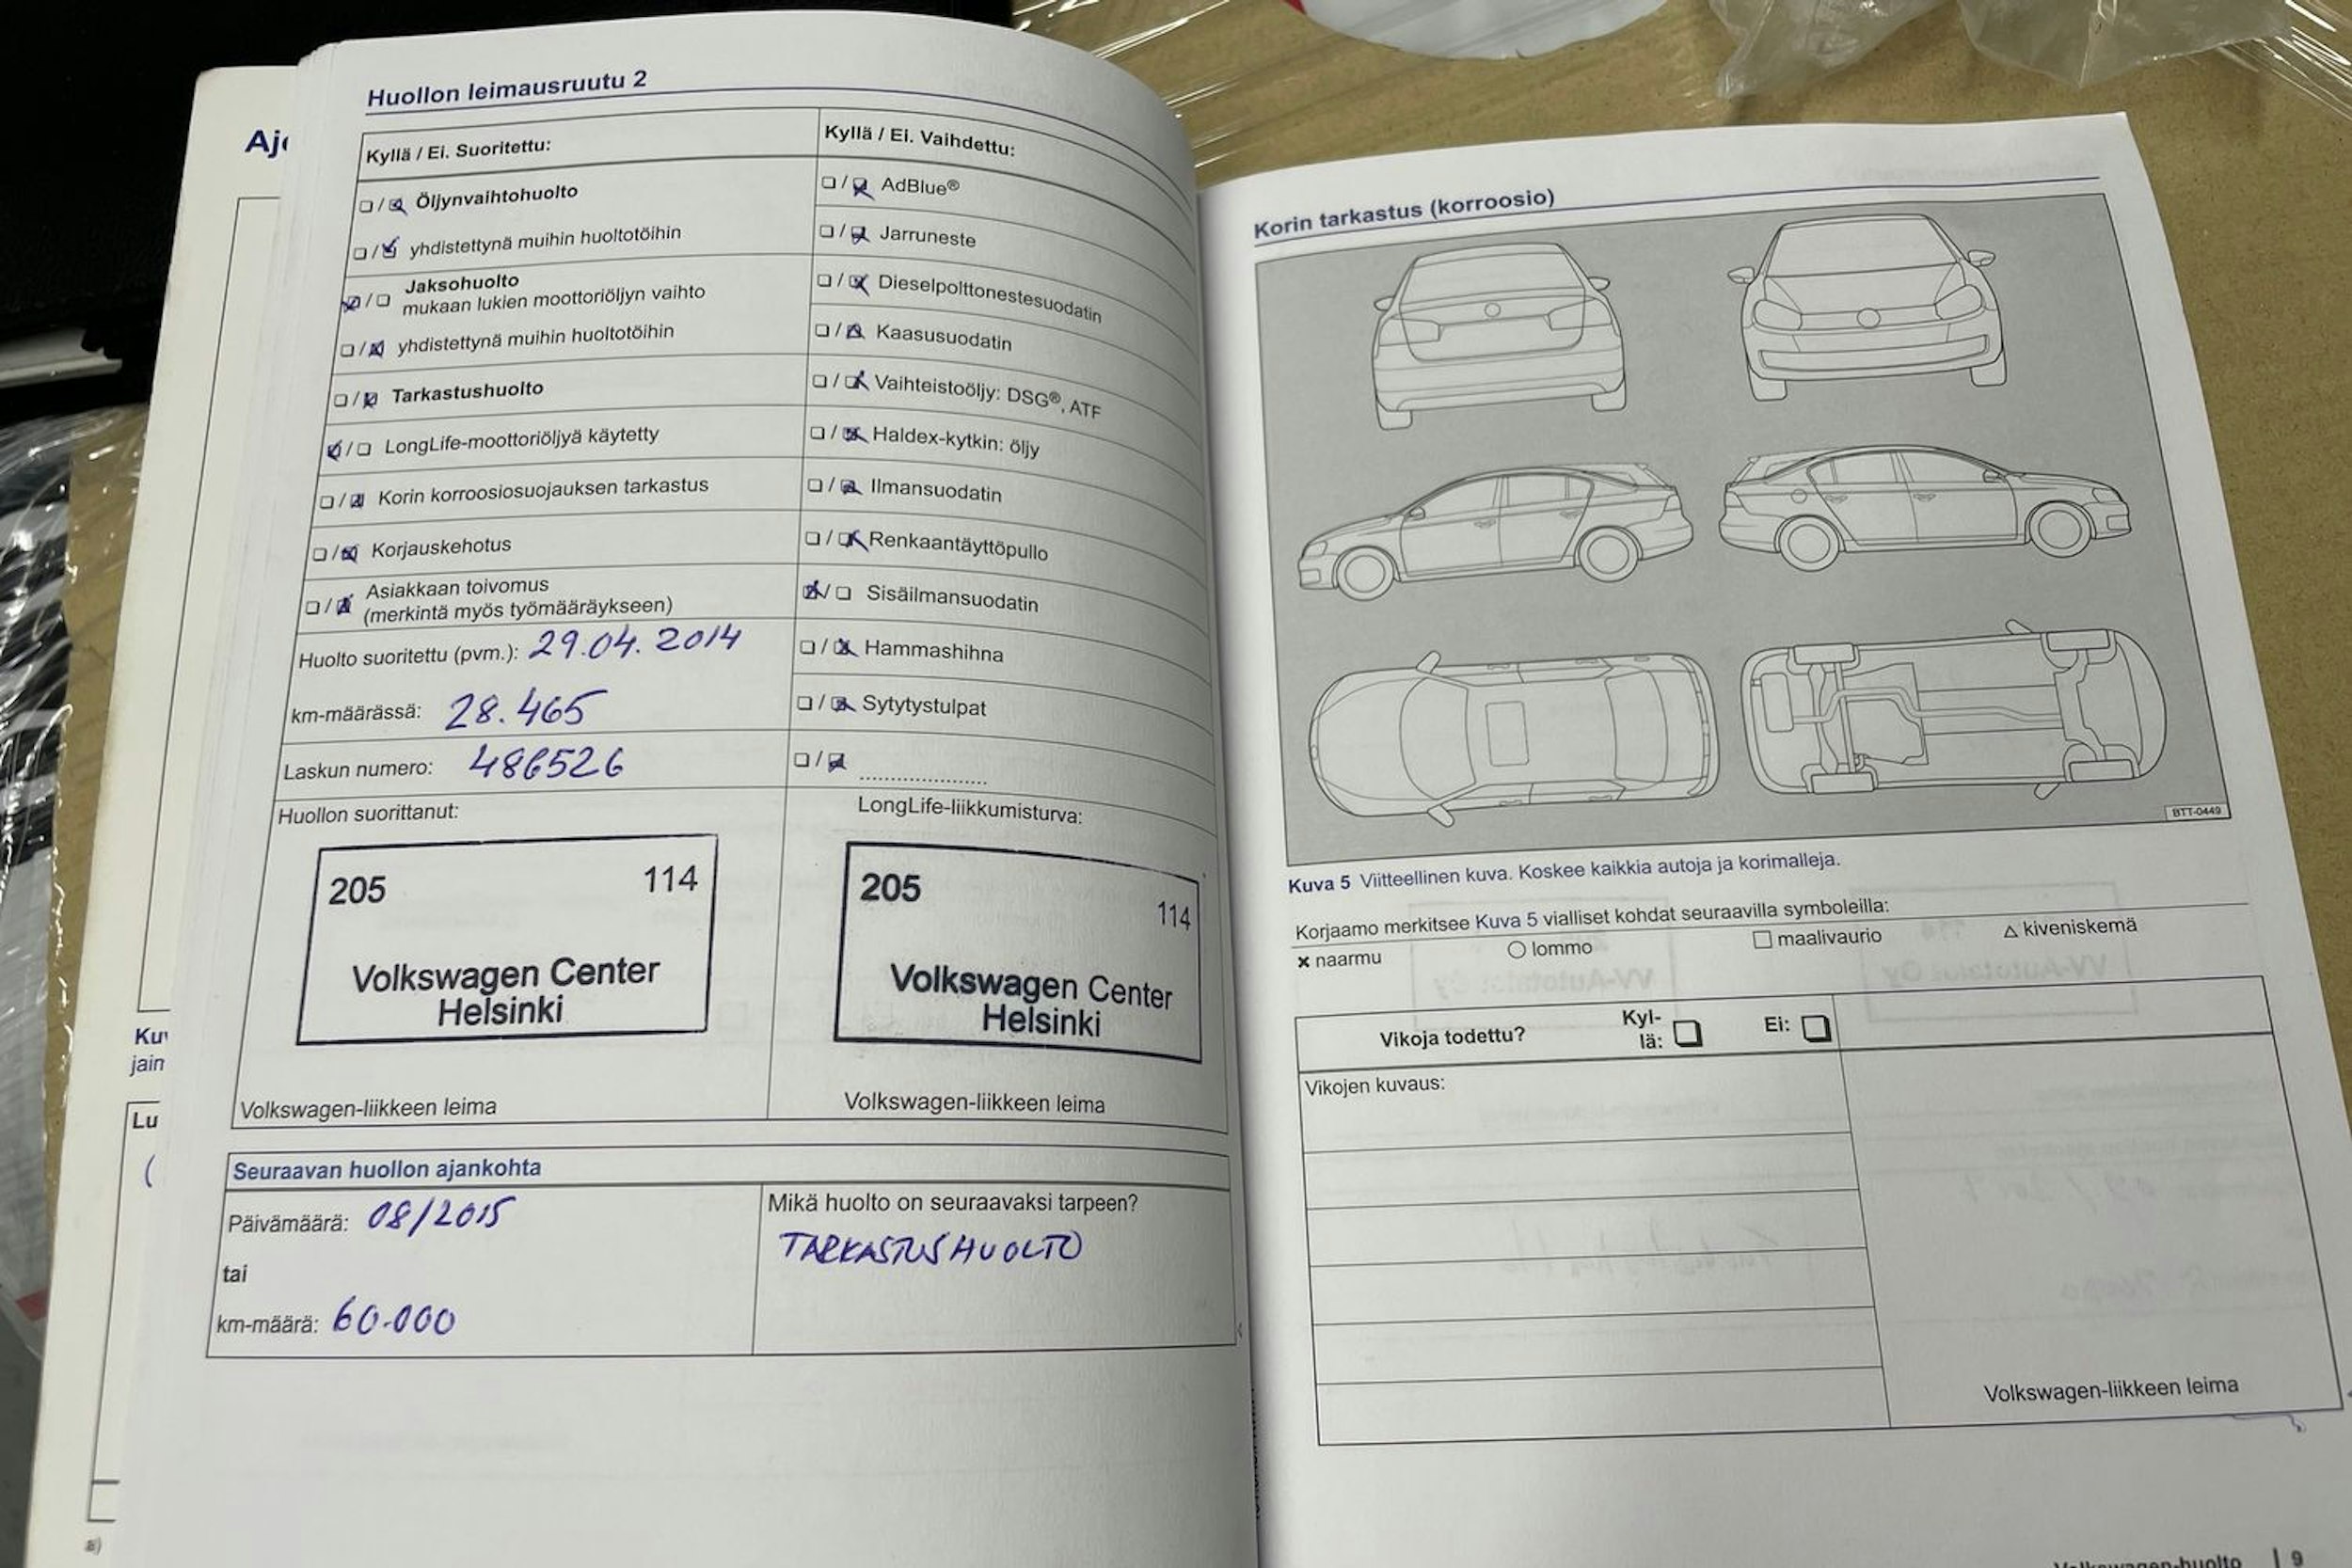 Huollon leimausruutu 2
Kyllä / Ei. Suoritettu:
Öljynvaihtohuolto
yhdistettynä muihin huoltotöihin
Jaksohuolto
mukaan lukien moottoriöljyn vaihto
yhdistettynä muihin huoltotöihin
Tarkastushuolto
LongLife-moottoriöljyä käytetty
Korin korroosiosuojauksen tarkastus
Korjauskehotus
Asiakkaan toivomus
(merkintä myös työmääräykseen)
Huolto suoritettu (pvm.): 29.04.2014
km-määrässä: 28.465
Laskun numero: 486526
Huollon suorittanut:
205 114
Volkswagen Center
Helsinki
Volkswagen-liikkeen leima
Kyllä / Ei. Vaihdettu:
AdBlue®
Jarruneste
Dieselpolttonestesuodatin
Kaasusuodatin
Vaihteistoöljy: DSG®, ATF
Haldex-kytkin: öljy
Ilmansuodatin
Renkaantäyttöpullo
Sisäilmansuodatin
Hammashihna
Sytytystulpat
LongLife-liikkumisturva:
205 114
Volkswagen Center
Helsinki
Volkswagen-liikkeen leima
Seuraavan huollon ajankohta
Päivämäärä: 08/2015
tai
km-määrä: 60.000
Mikä huolto on seuraavaksi tarpeen?
TARKASTUSHUOLTO
Korin tarkastus (korroosio)
BTT-0449
Kuva 5 Viitteellinen kuva. Koskee kaikkia autoja ja korimalleja.
Korjaamo merkitsee Kuva 5 vialliset kohdat seuraavilla symboleilla:
× naarmu ○ lommo □ maalivaurio △ kiveniskemä
Vikoja todettu? Kyl-
lä: □ Ei: □
Vikojen kuvaus:
Volkswagen-liikkeen leima
Volkswagen-huolto | 9